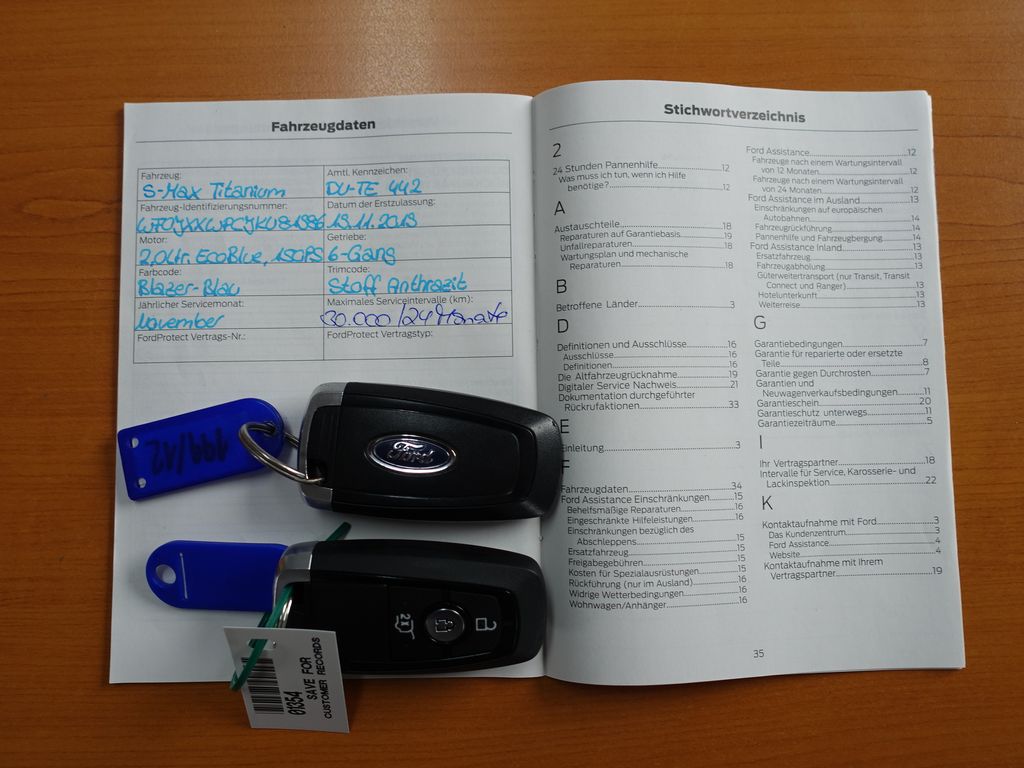 Fahrzeugdaten
Fahrzeug:
S-Max Titanium
Amtl. Kennzeichen:
DU-TE 442
Fahrzeug-Identifizierungsnummer:
Datum der Erstzulassung:
19.11.2019
Motor:
2,0Ltr. EcoBlue, 150PS
Getriebe:
6-Gang
Farbcode:
Blazer-Blau
Trimcode:
Stoff Anthrazit
Jährlicher Servicemonat:
November
Maximales Serviceintervalle (km):
30.000/24 Monate
FordProtect Vertrags-Nr.:
FordProtect Vertragstyp:
199/12
Ford
2x
01354
SAVE FOR
CUSTOMER RECORDS
Stichwortverzeichnis
2
24 Stunden Pannenhilfe 12
Was muss ich tun, wenn ich Hilfe
benötige? 12
A
Austauschteile 18
Reparaturen auf Garantiebasis 19
Unfallreparaturen 18
Wartungsplan und mechanische
Reparaturen 18
B
Betroffene Länder 3
D
Definitionen und Ausschlüsse 16
Ausschlüsse 16
Definitionen 16
Die Altfahrzeugrücknahme 19
Digitaler Service Nachweis 21
Dokumentation durchgeführter
Rückrufaktionen 33
E
Einleitung 3
F
Fahrzeugdaten 34
Ford Assistance Einschränkungen 15
Behelfsmäßige Reparaturen 16
Eingeschränkte Hilfeleistungen 16
Einschränkungen bezüglich des
Abschleppens 15
Ersatzfahrzeug 15
Freigabegebühren 15
Kosten für Spezialausrüstungen 15
Rückführung (nur im Ausland) 16
Widrige Wetterbedingungen 16
Wohnwagen/Anhänger 16
Ford Assistance 12
Fahrzeuge nach einem Wartungsintervall
von 12 Monaten 12
Fahrzeuge nach einem Wartungsintervall
von 24 Monaten 12
Ford Assistance im Ausland 13
Einschränkungen auf europäischen
Autobahnen 14
Fahrzeugrückführung 14
Pannenhilfe und Fahrzeugbergung 14
Ford Assistance Inland 13
Ersatzfahrzeug 13
Fahrzeugabholung 13
Güterweitertransport (nur Transit, Transit
Connect und Ranger) 13
Hotelunterkunft 13
Weiterreise 13
G
Garantiebedingungen 7
Garantie für reparierte oder ersetzte
Teile 8
Garantie gegen Durchrosten 7
Garantien und
Neuwagenverkaufsbedingungen 11
Garantieschein 20
Garantieschutz unterwegs 11
Garantiezeiträume 5
I
Ihr Vertragspartner 18
Intervalle für Service, Karosserie- und
Lackinspektion 22
K
Kontaktaufnahme mit Ford 3
Das Kundenzentrum 3
Ford Assistance 4
Website 4
Kontaktaufnahme mit Ihrem
Vertragspartner 19
35